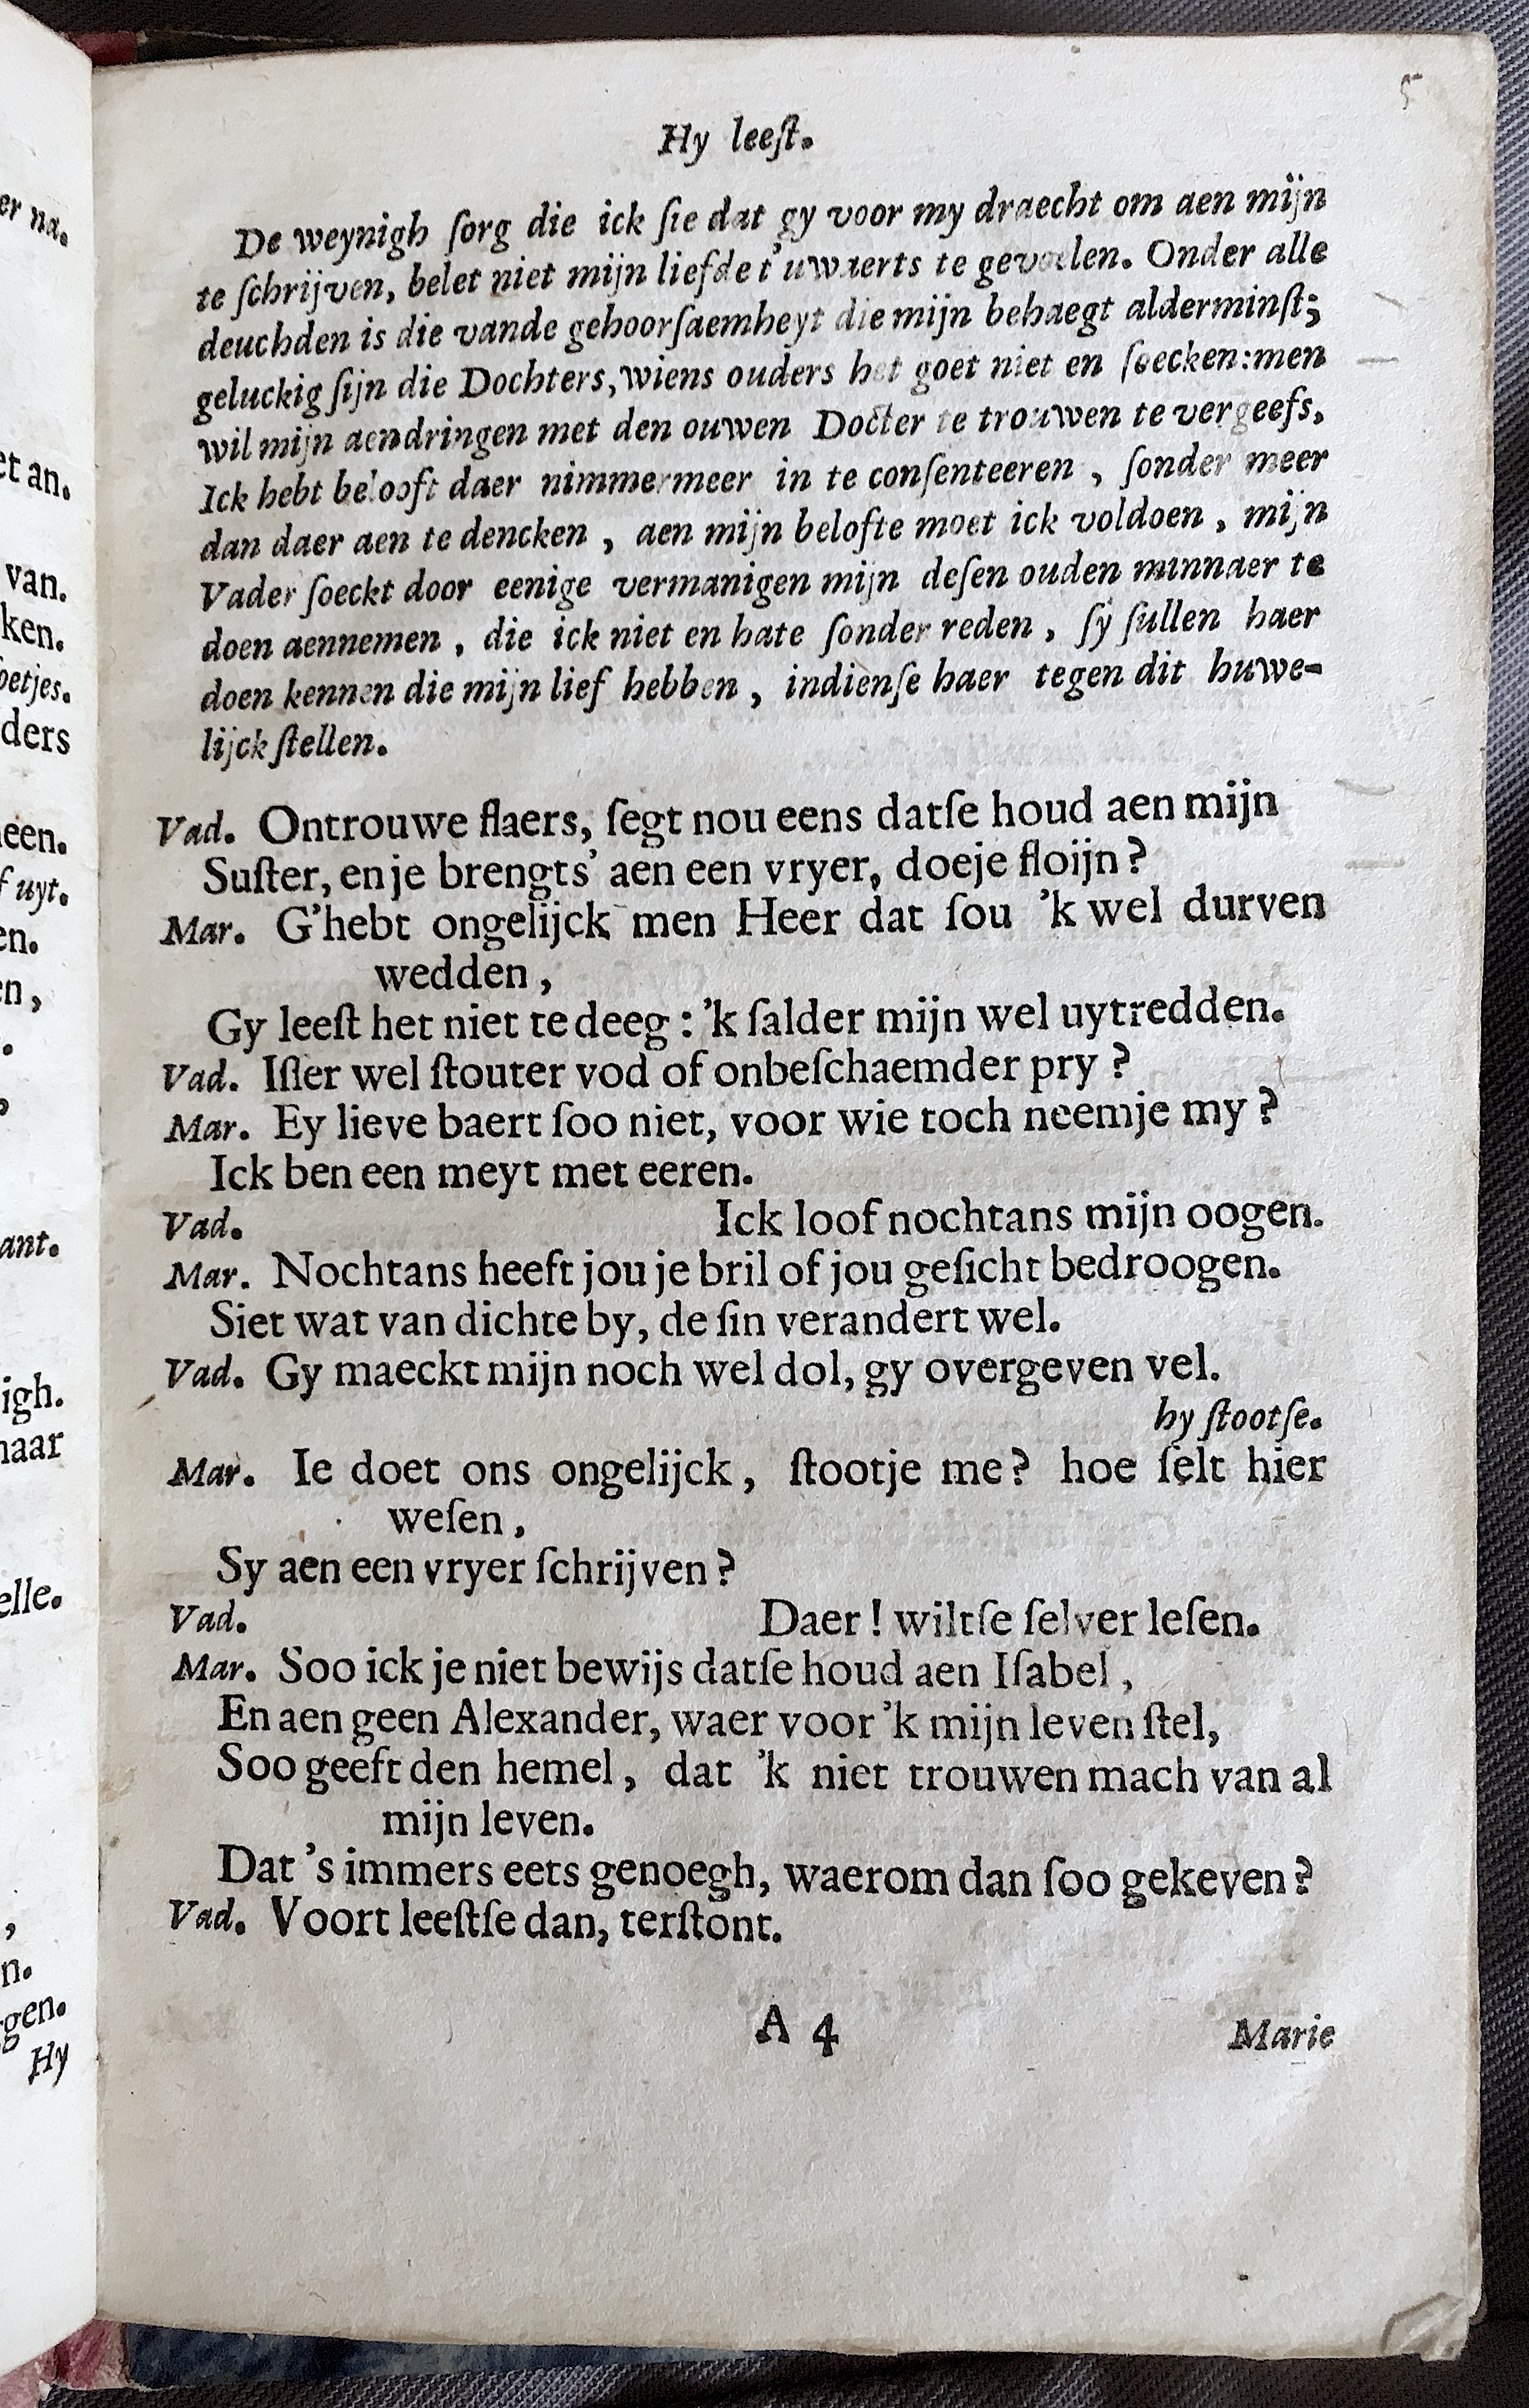 5
Hy leeſt.
De weynigh ſorg die ick ſie dat gy voor my draecht om aen mijn
te ſchrijven, belet niet mijn liefde t'uwaerts te gevoelen. Onder alle
deuchden is die vande gehoorſaemheyt die mijn behaegt alderminſt;
geluckig ſijn die Dochters, wiens ouders het goet niet en ſoecken: men
wil mijn aendringen met den ouwen Docter te trouwen te vergeefs,
Ick hebt belooft daer nimmermeer in te conſenteeren, ſonder meer
dan daer aen te dencken, aen mijn belofte moet ick voldoen, mijn
Vader ſoeckt door eenige vermanigen mijn deſen ouden minnaer te
doen aennemen, die ick niet en hate ſonder reden, ſy ſullen haer
doen kennen die mijn lief hebben, indienſe haer tegen dit huwe-
lijck ſtellen.
Vad. Ontrouwe ſlaers, ſegt nou eens datſe houd aen mijn
Suſter, en je brengts' aen een vryer, doeje ſloijn?
Mar. G'hebt ongelijck men Heer dat ſou 'k wel durven
wedden,
Gy leeſt het niet te deeg: 'k ſalder mijn wel uytredden.
Vad. Iſſer wel ſtouter vod of onbeſchaemder pry?
Mar. Ey lieve baert ſoo niet, voor wie toch neemje my?
Ick ben een meyt met eeren.
Vad. Ick loof nochtans mijn oogen.
Mar. Nochtans heeft jou je bril of jou geſicht bedroogen.
Siet wat van dichte by, de ſin verandert wel.
Vad. Gy maeckt mijn noch wel dol, gy overgeven vel.
hy ſtootſe.
Mar. Ie doet ons ongelijck, ſtootje me? hoe ſelt hier
weſen,
Sy aen een vryer ſchrijven?
Vad. Daer! wiltſe ſelver leſen.
Mar. Soo ick je niet bewijs datſe houd aen Iſabel,
En aen geen Alexander, waer voor 'k mijn leven ſtel,
Soo geeft den hemel, dat 'k niet trouwen mach van al
mijn leven.
Dat 's immers eets genoegh, waerom dan ſoo gekeven?
Vad. Voort leeſtſe dan, terſtont.
A 4 Marie